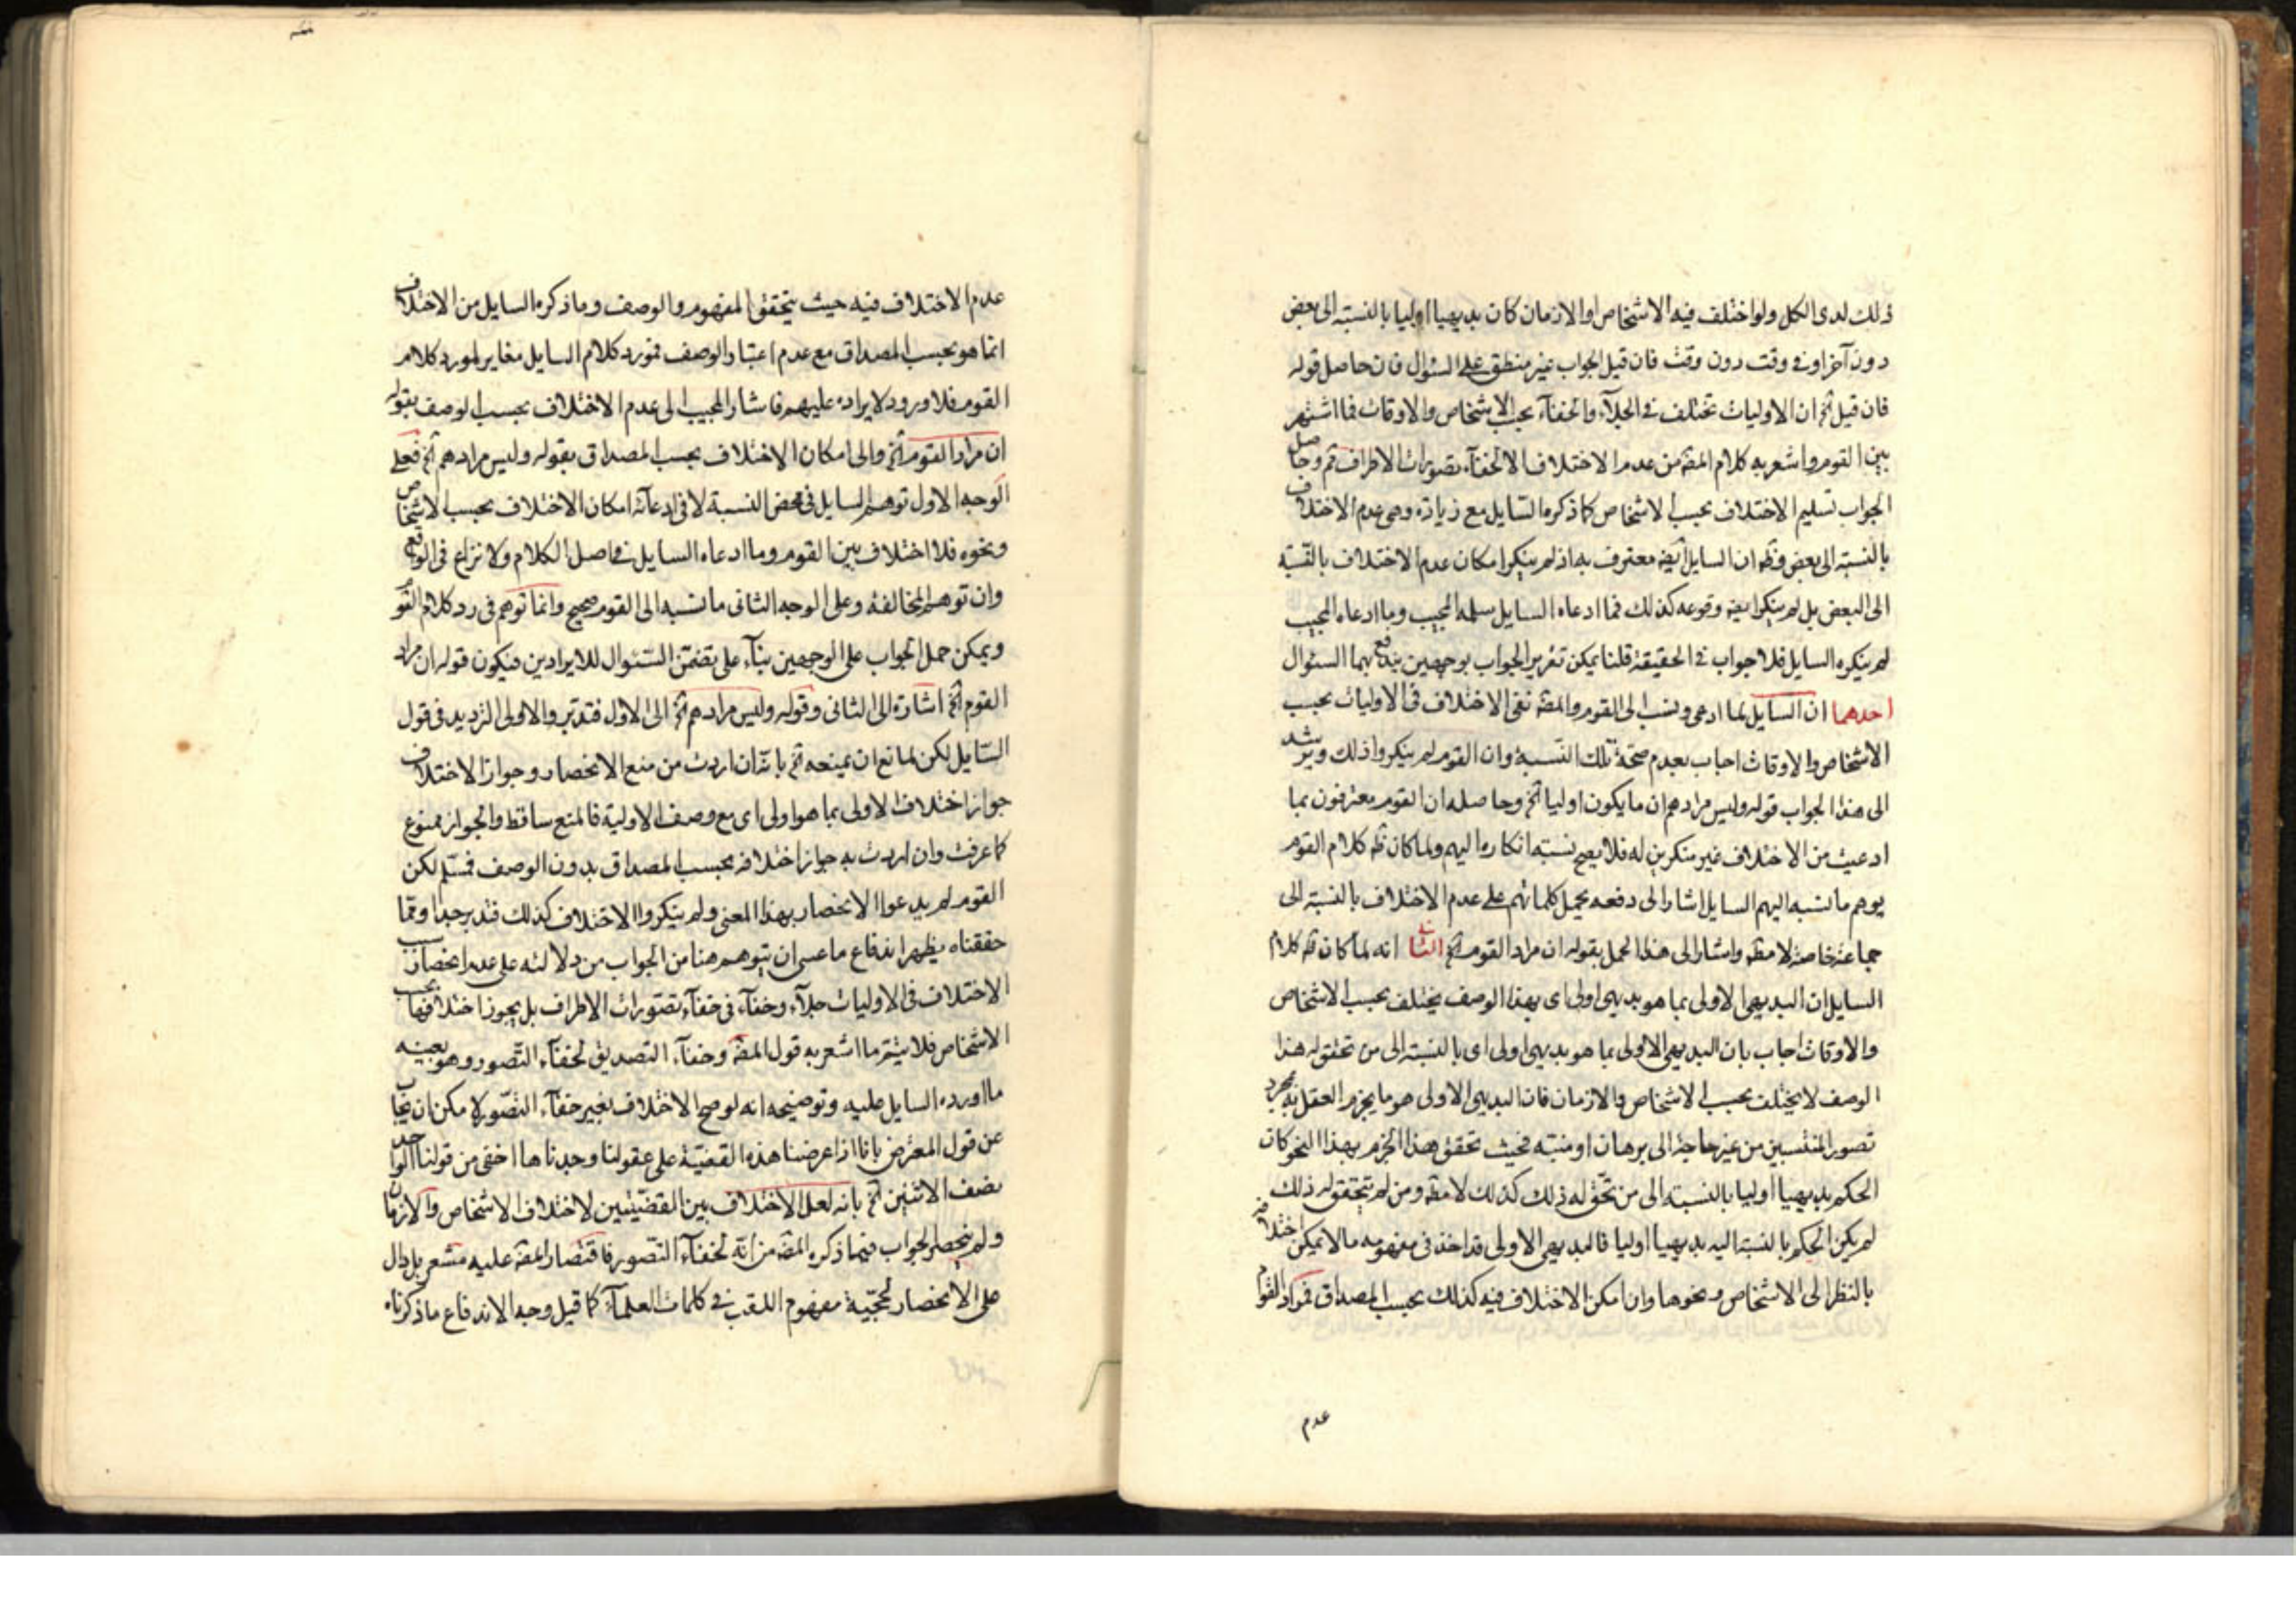 ذلك لدى الكل ولو اختلف فيه الاشخاص او الازمان كان بديهيا اوليا بالنسبة الى بعض
دون آخر او في وقت دون وقت فان قيل الجواب غير منطبق على السؤال فان حاصل قوله
فان قيل آلخ ان الاوليات تختلف في الجلآء والخفآء بحسب الاشخاص والاوقات فما اشتهر
بين القوم واشعر به كلام المصه من عدم الاختلاف الا لخفآء تصورات الاطراف ثم وحاصل
الجواب تسليم الاختلاف بحسب الاشخاص كما ذكره السايل مع زيادة وهي عدم الاختلاف
بالنسبة الى بعض وظه ان السايل ايضه معترف به اذ لم ينكر امكان عدم الاختلاف بالنسبة
الى البعض بل لم ينكر ايضه وقوعه كذلك فما ادعاه السايل سلمه المجيب وما ادعاه المجيب
لم ينكره السايل فلا جواب في الحقيقة قلنا يمكن تقرير الجواب بوجهين يندفع بهما السئوال
احدهما ان السايل لما ادعى ونسب الى القوم والمصه نفى الاختلاف في الاوليات بحسب
الاشخاص والاوقات اجاب بعدم صحة تلك النسبة وان القوم لم ينكروا ذلك ويرشد
الى هذا الجواب قوله وليس مرادهم ان ما يكون اوليا آلخ وحاصله ان القوم معترفون بما
ادعيت من الاختلاف غير منكرين له فلا يصح نسبة انكاره اليهم ولما كان ظه كلام القوم
يوهم ما نسبه اليهم السايل اشار الى دفعه بحمل كلماتهم على عدم الاختلاف بالنسبة الى
جماعة خاصة لا مطه واشار الى هذا الحمل بقوله ان مراد القوم آلخ الثاني انه لما كان ظه كلام
السايل ان البديهى الاولى بما هو بديهى اولى اى بهذا الوصف يختلف بحسب الاشخاص
والاوقات اجاب بان البديهى الاولى بما هو بديهى اولى اى بالنسبة الى من تحقق له هذا
الوصف لا يختلف بحسب الاشخاص والازمان فان البديهى الاولى هو ما يجزم العقل به بمجرد
تصور المنتسبين من غير حاجة الى برهان او منبه فحيث تحقق هذا الجزم بهذا النحو كان
الحكم بديهيا اوليا بالنسبة الى من تحقق له ذلك كذلك لا مطه ومن لم يتحقق له ذلك
لم يكن الحكم بالنسبة اليه بديهيا اوليا فالبديهى الاولى قد اخذ في مفهومه ما لا يمكن اختلافه
بالنظر الى الاشخاص ونحوها وان امكن الاختلاف فيه كذلك بحسب المصداق فمراد القوم
عدم
عدم الاختلاف فيه حيث يتحقق المفهوم والوصف وما ذكره السايل من الاختلاف
انما هو بحسب المصداق مع عدم اعتبار الوصف فمورد كلام السايل مغاير لمورد كلام
القوم فلا ورود لايراده عليهم فاشار المجيب الى عدم الاختلاف بحسب الوصف بقوله
ان مراد القوم آلخ والى امكان الاختلاف بحسب المصداق بقوله وليس مرادهم آلخ فعلى
الوجه الاول توهم السايل في محض النسبة لا في ادعآئه امكان الاختلاف بحسب الاشخاص
ونحوه فلا اختلاف بين القوم وما ادعاه السايل في اصل الكلام ولا نزاع في الواقع
وان توهم المخالفة وعلى الوجه الثاني ما نسبه الى القوم صحيح وانما توهم في رد كلام القوم
ويمكن حمل الجواب على الوجهين بنآء على تضمن السئوال للايرادين فيكون قوله ان مراد
القوم آلخ اشارة الى الثاني وقوله وليس مرادهم آلخ الى الاول فتدبر والاولى الترديد في قول
السايل لكن لمانع ان يمنعه آلخ بانه ان اردت من منع الانحصار وجواز الاختلاف
جواز اختلاف الاولى بما هو اولى اى مع وصف الاولية فالمنع ساقط والجواز ممنوع
كما عرفت وان اردت به جواز اختلافه بحسب المصداق بدون الوصف فمسلم لكن
القوم لم يدعوا الانحصار بهذا المعنى ولم ينكروا الاختلاف كذلك فتدبر جدا ومما
حققناه يظهر اندفاع ما عسى ان يتوهم هنا من الجواب من دلالته على عدم انحصار سبب
الاختلاف في الاوليات جلآء وخفآء في خفآء تصورات الاطراف بل يجوز اختلافها بحسب
الاشخاص فلا يتم ما اشعر به قول المصه وخفآء التصديق لخفآء التصور وهو بعينه
ما اورده السايل عليه وتوضيحه انه لو صح الاختلاف بغير خفآء التصور لا مكن ان يجاب
عن قول المعترض بانا اذا عرضنا هذه القضية على عقولنا وجدناها اخفى من قولنا الواحد
نصف الاثنين آلخ بانه لعل الاختلاف بين القضيتين لاختلاف الاشخاص والازمان
ولم ينحصر الجواب فيما ذكره المصه من انه لخفآء التصور فاقتصار المصه عليه مشعر بل دال
على الانحصار لحجية مفهوم اللقب في كلمات العلمآء كما قيل وجه الاندفاع ما ذكرناه